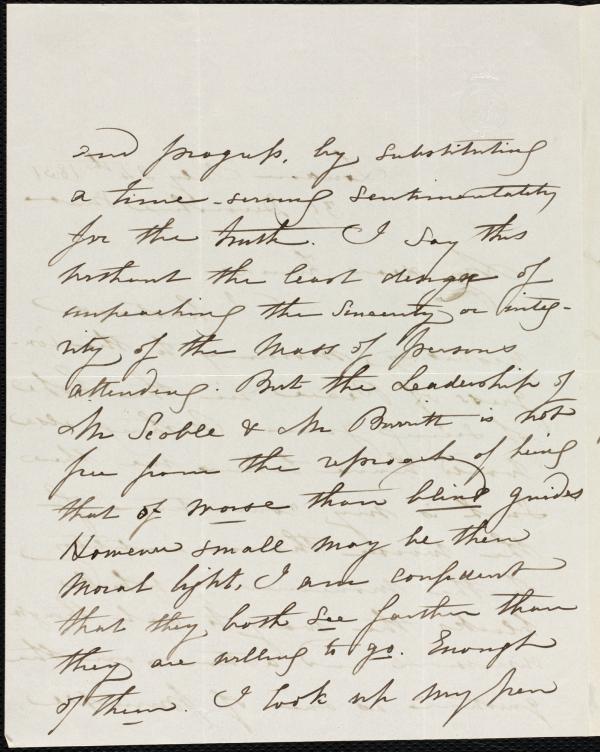 and progress, by substituting
a time-serving sentimentality
for the truth. I say this
without the least design of
impeaching the sincerity or integ-
rity of the mass of persons
attending. But the Leadership of
Mr Scoble & Mr Burritt is not
free from the reproach of being
that of worse than blind guides
However small may be their
moral light, I am confident
that they both see farther than
they are willing to go. Enough
of them. I took up my pen